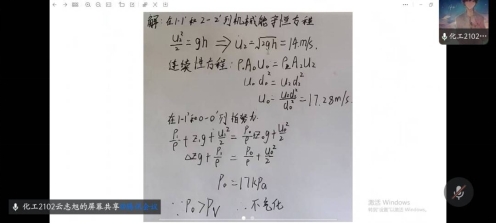 解：在1-1'和2-2'列机械能守恒方程
u₂²/2 = gh ⟹ u₂ = √2gh = 14m/s.
连续性方程：ρ₀A₀u₀ = ρ₂A₂u₂
u₀d₀² = u₂d₂²
u₀ = u₂d₂²/d₀² = 17.28m/s
在1-1'和0-0'列
P₁/ρ + z₁g + u₁²/2 = P₀/ρ + z₀g + u₀²/2
Δzg + P₁/ρ = P₀/ρ + u₀²/2
P₀ = 17kPa
∵ P₀ > Pv ∴ 不汽化
化工2102云志旭的屏幕共享
激活 Windows
化工2102